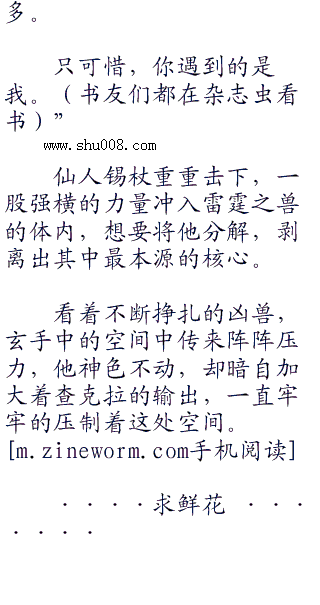 多。
只可惜，你遇到的是
我。（书友们都在杂志虫看
书）”
www.shu008.com
仙人锡杖重重击下，一
股强横的力量冲入雷霆之兽
的体内，想要将他分解，剥
离出其中最本源的核心。
看着不断挣扎的凶兽，
玄手中的空间中传来阵阵压
力，他神色不动，却暗自加
大着查克拉的输出，一直牢
牢的压制着这处空间。
[m.zineworm.com手机阅读]
····求鲜花 ···
····